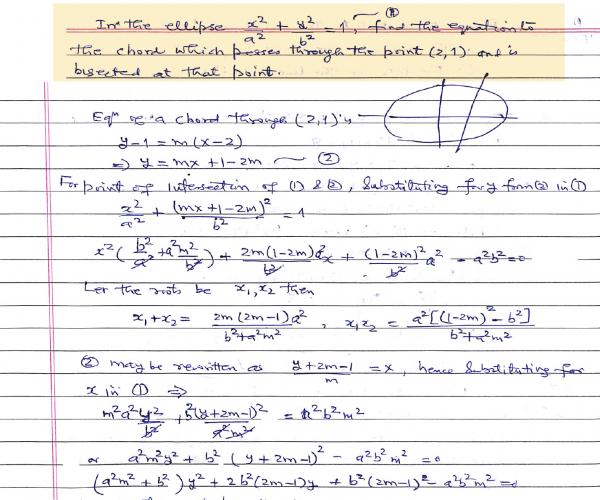 In the ellipse x²/a² + y²/b² = 1, ① find the equation to
the chord which passes through the point (2,1) and is
bisected at that point.
Eqⁿ of a chord through (2,1) is
y-1 = m(x-2)
⇒ y = mx + 1-2m ②
For point of intersection of (1) & (2), substituting for y form (2) in (1)
x²/a² + (mx+1-2m)²/b² = 1
x²(b²/a² + a²m²/b²) + 2m(1-2m)a²/b² x + (1-2m)²/b² a² - a²b² = 0
Let the roots be x₁, x₂ then
x₁+x₂ = 2m(2m-1)a²/b²+a²m², x₁x₂ = a²[(1-2m)²-b²]/b²+a²m²
② may be rewritten as y+2m-1/m = x, hence substituting for
x in (1) ⇒
m²a²y²/b² , b²(y+2m-1)²/a²m² = a²b²m²
or a²m²y² + b²(y+2m-1)² - a²b²m² = 0
(a²m²+b²)y² + 2b²(2m-1)y + b²(2m-1)² - a²b²m² = 0